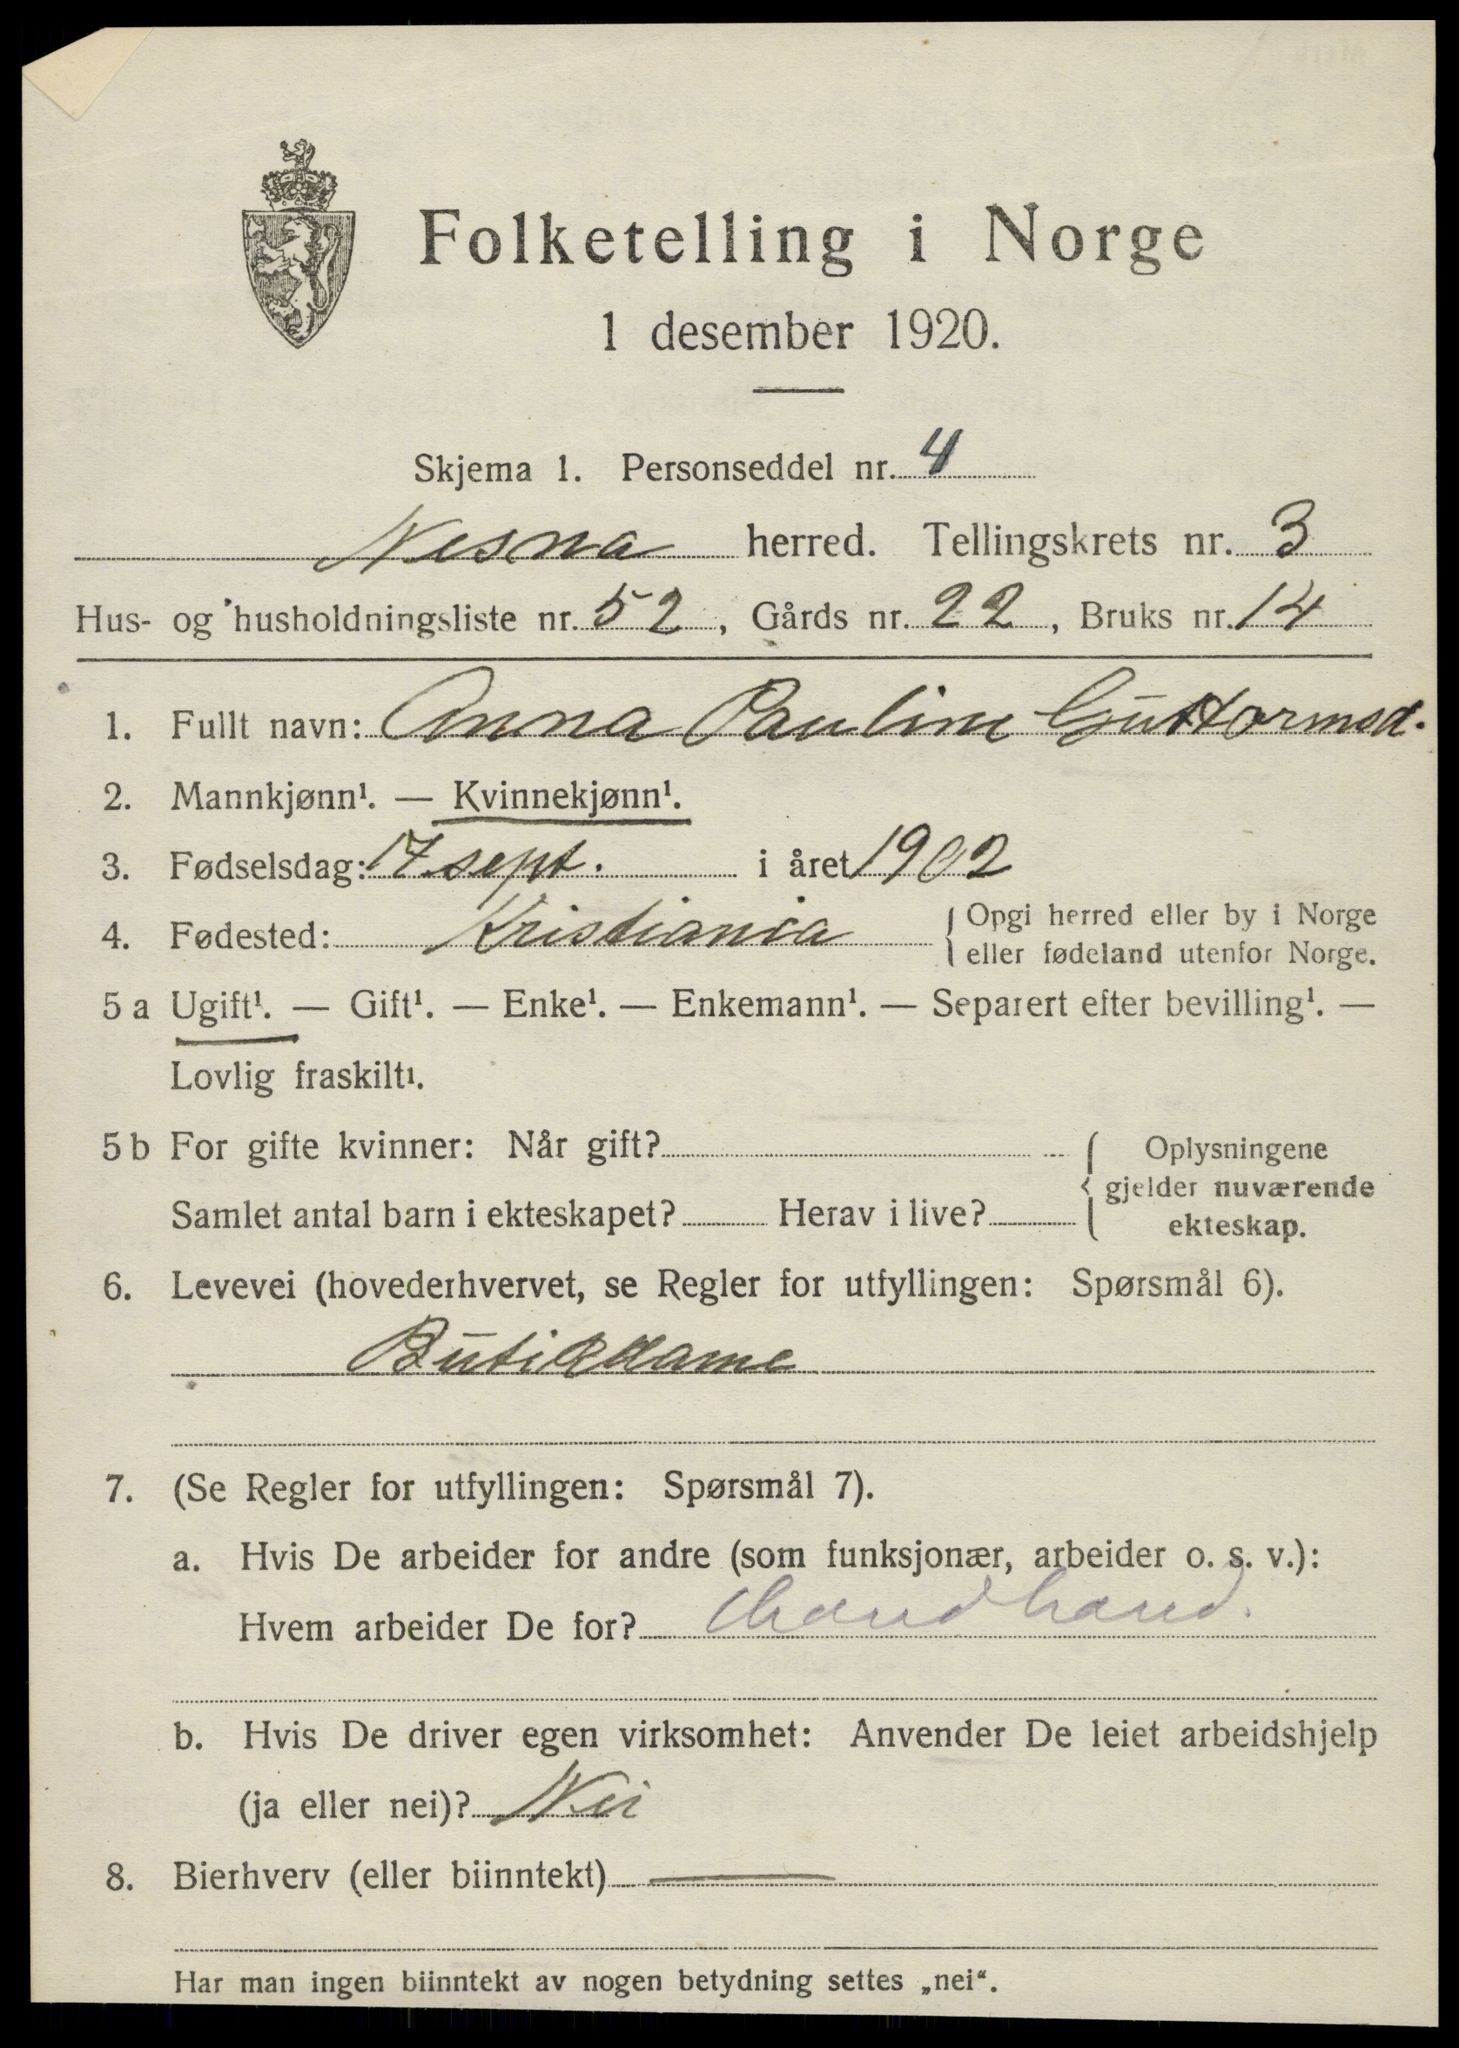 Folketelling i Norge
1 desember 1920.
Skjema 1. Personseddel nr. 4
Nesna herred. Tellingskrets nr. 3
Hus- og husholdningsliste nr. 52, Gårds nr. 22, Bruks nr. 14
1. Fullt navn: Anna Pauline Guttormsd.
2. Mannkjønn¹. — Kvinnekjønn¹.
3. Fødselsdag: 17 sept. i året 1902
4. Fødested: Kristiania { Opgi herred eller by i Norge
eller fødeland utenfor Norge.
5 a Ugift¹. — Gift¹. — Enke¹. — Enkemann¹. — Separert efter bevilling¹. —
Lovlig fraskilt¹.
5 b For gifte kvinner: Når gift? { Oplysningene
gjelder nuværende
Samlet antal barn i ekteskapet? Herav i live? ekteskap.
6. Levevei (hovederhvervet, se Regler for utfyllingen: Spørsmål 6).
Butikkdame
7. (Se Regler for utfyllingen: Spørsmål 7).
a. Hvis De arbeider for andre (som funksjonær, arbeider o. s. v.):
Hvem arbeider De for?
b. Hvis De driver egen virksomhet: Anvender De leiet arbeidshjelp
(ja eller nei)? Nei
8. Bierhverv (eller biinntekt) —
Har man ingen biinntekt av nogen betydning settes „nei“.